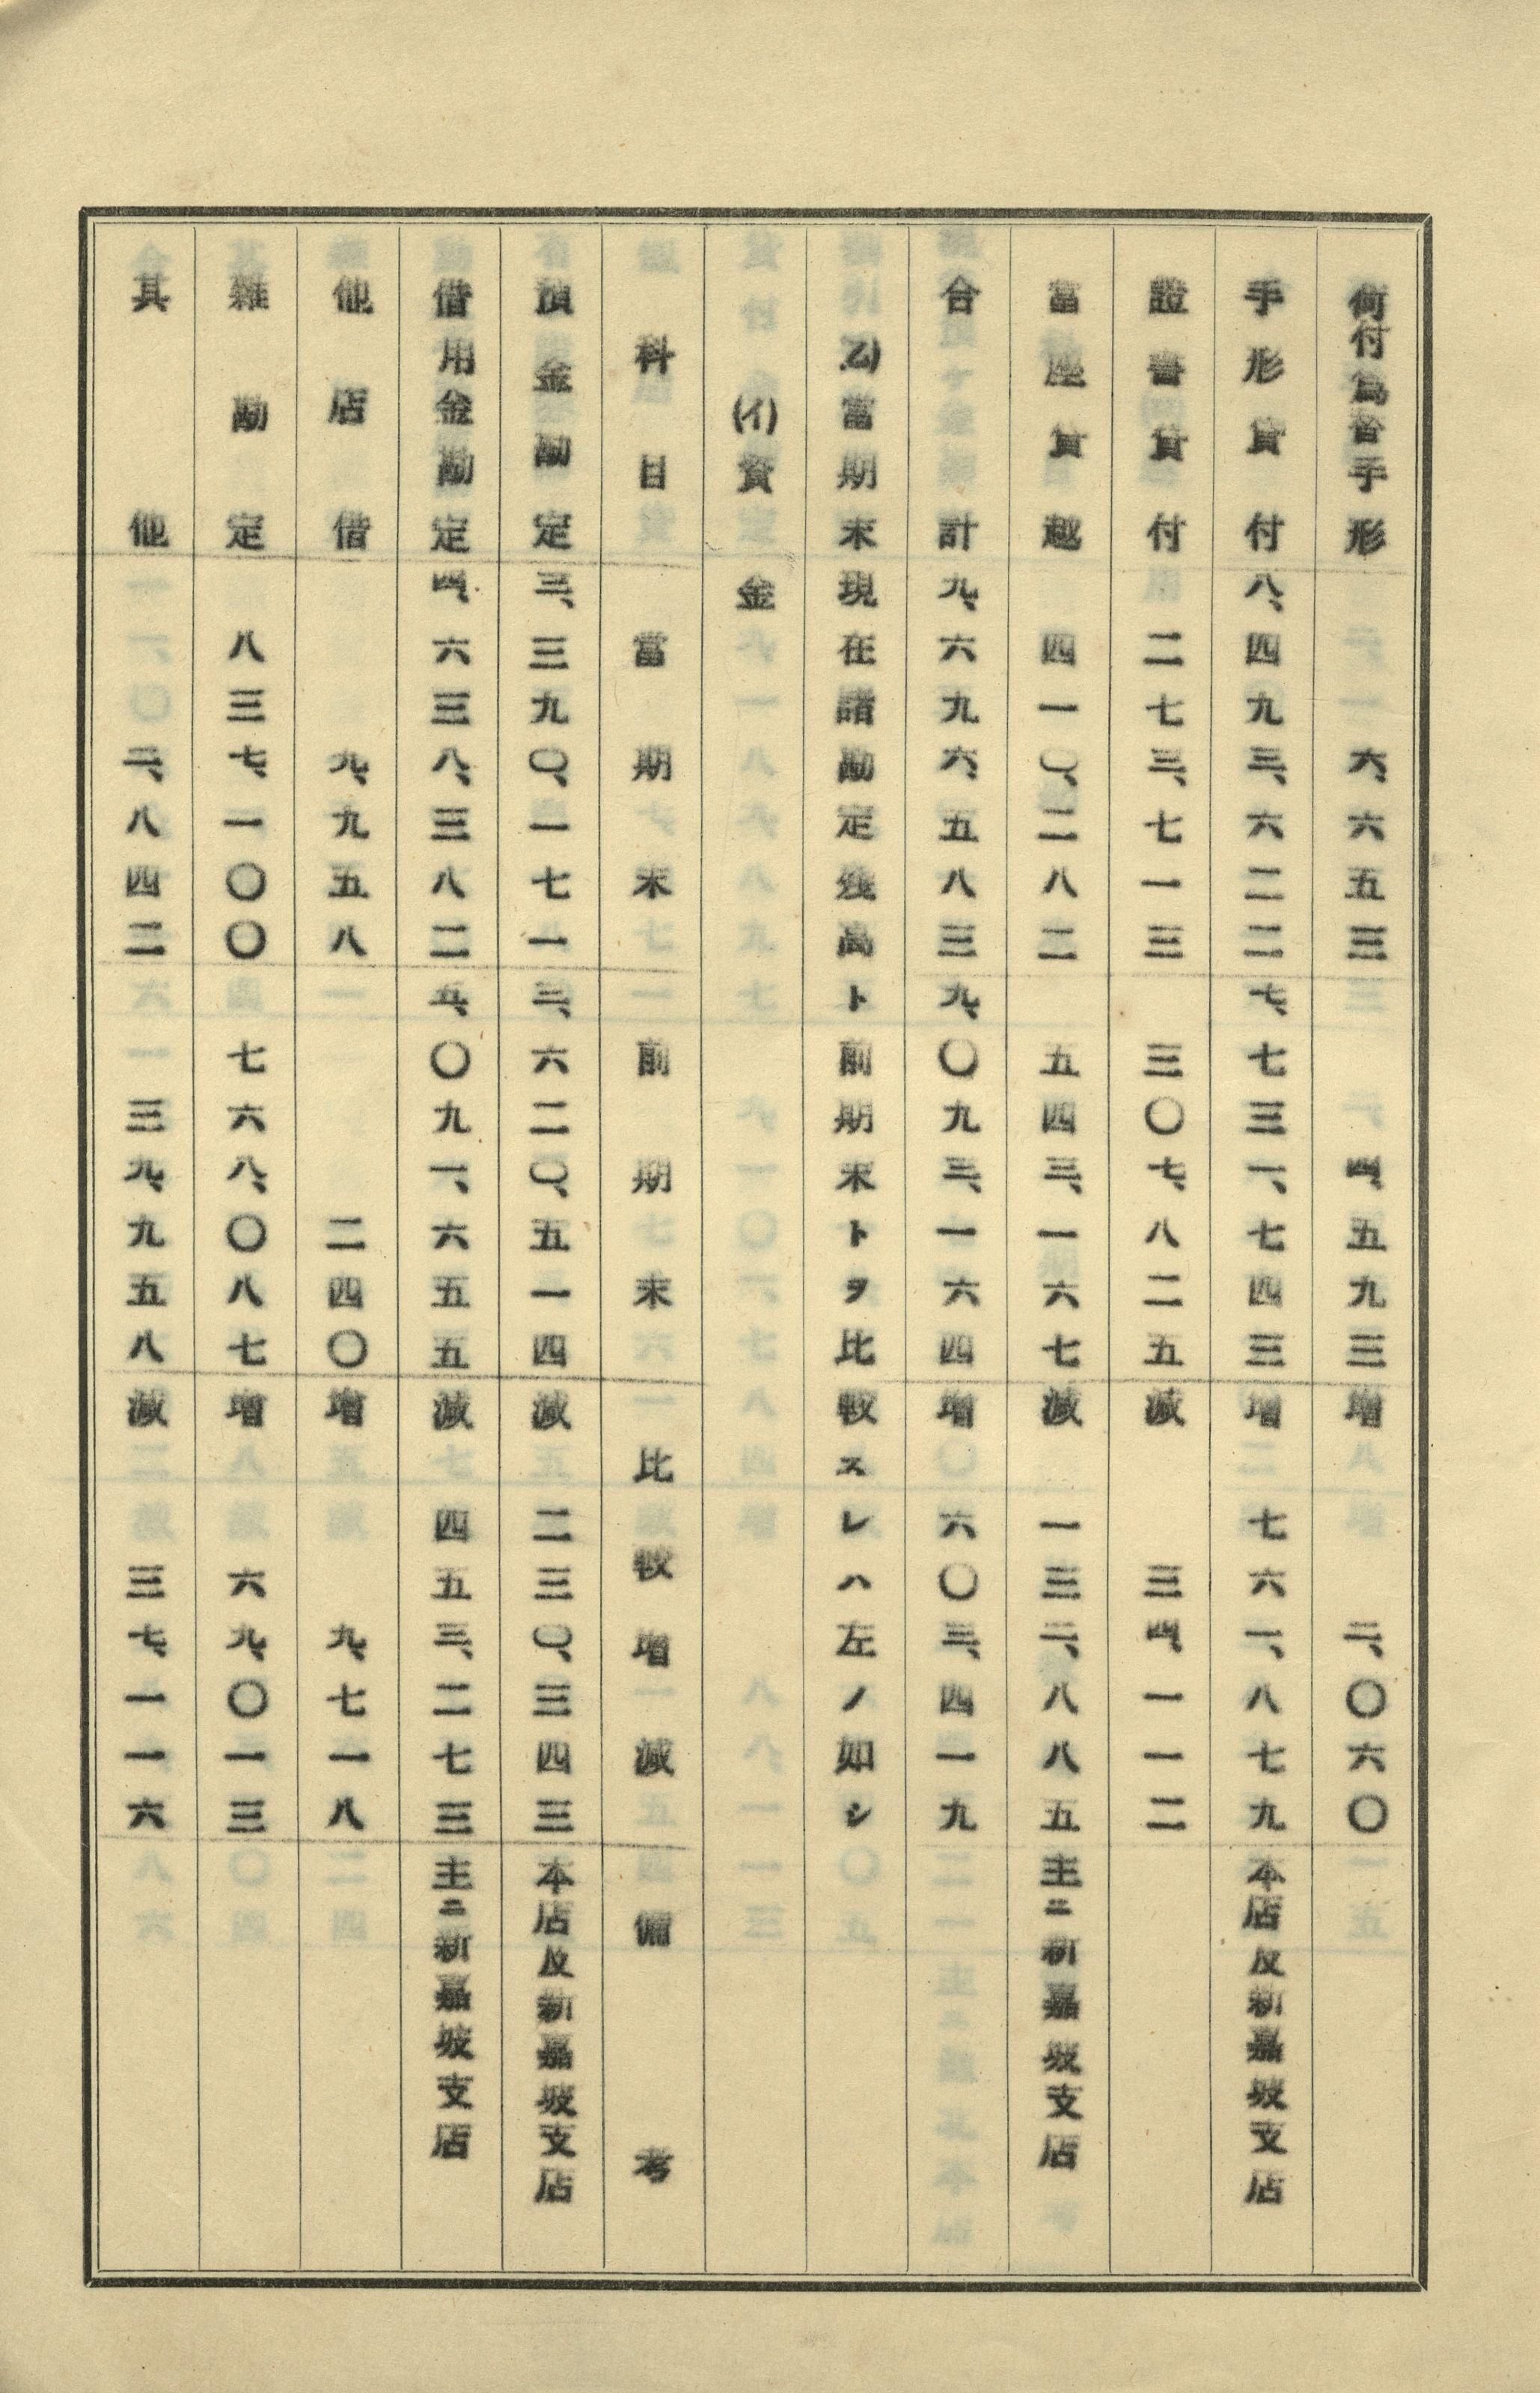 荷付為替手形 六、六五三 四、五九三 増 二、〇六〇
手形貸付 八、四九三、六二二 七、七三一、七四三 増 七六一、八七九 本店及新嘉坡支店
證書貸付 二七三、七一三 三〇七、八二五 減 三四、一一二
當座貸越 四一〇、二八二 五四三、一六七 減 一三二、八八五 主ニ新嘉坡支店
合計 九、六九六、五八三 九、〇九三、一六四 増 六〇三、四一九
(乙)當期末現在諸勘定殘高ト前期末トヲ比較スレハ左ノ如シ
(イ)資金
科目 當期末 前期末 比較増減 備考
預金勘定 三、三九〇、一七一 三、六二〇、五一四 減 二三〇、三四三 本店及新嘉坡支店
借用金勘定 四、六三八、三八二 五、〇九一、六五五 減 四五三、二七三 主ニ新嘉坡支店
他店借 九、九五八 二四〇 増 九、七一八
雜勘定 八三七、一〇〇 七六八、〇八七 増 六九、〇一三
其他 二、八四二 三九、九五八 減 三七、一一六